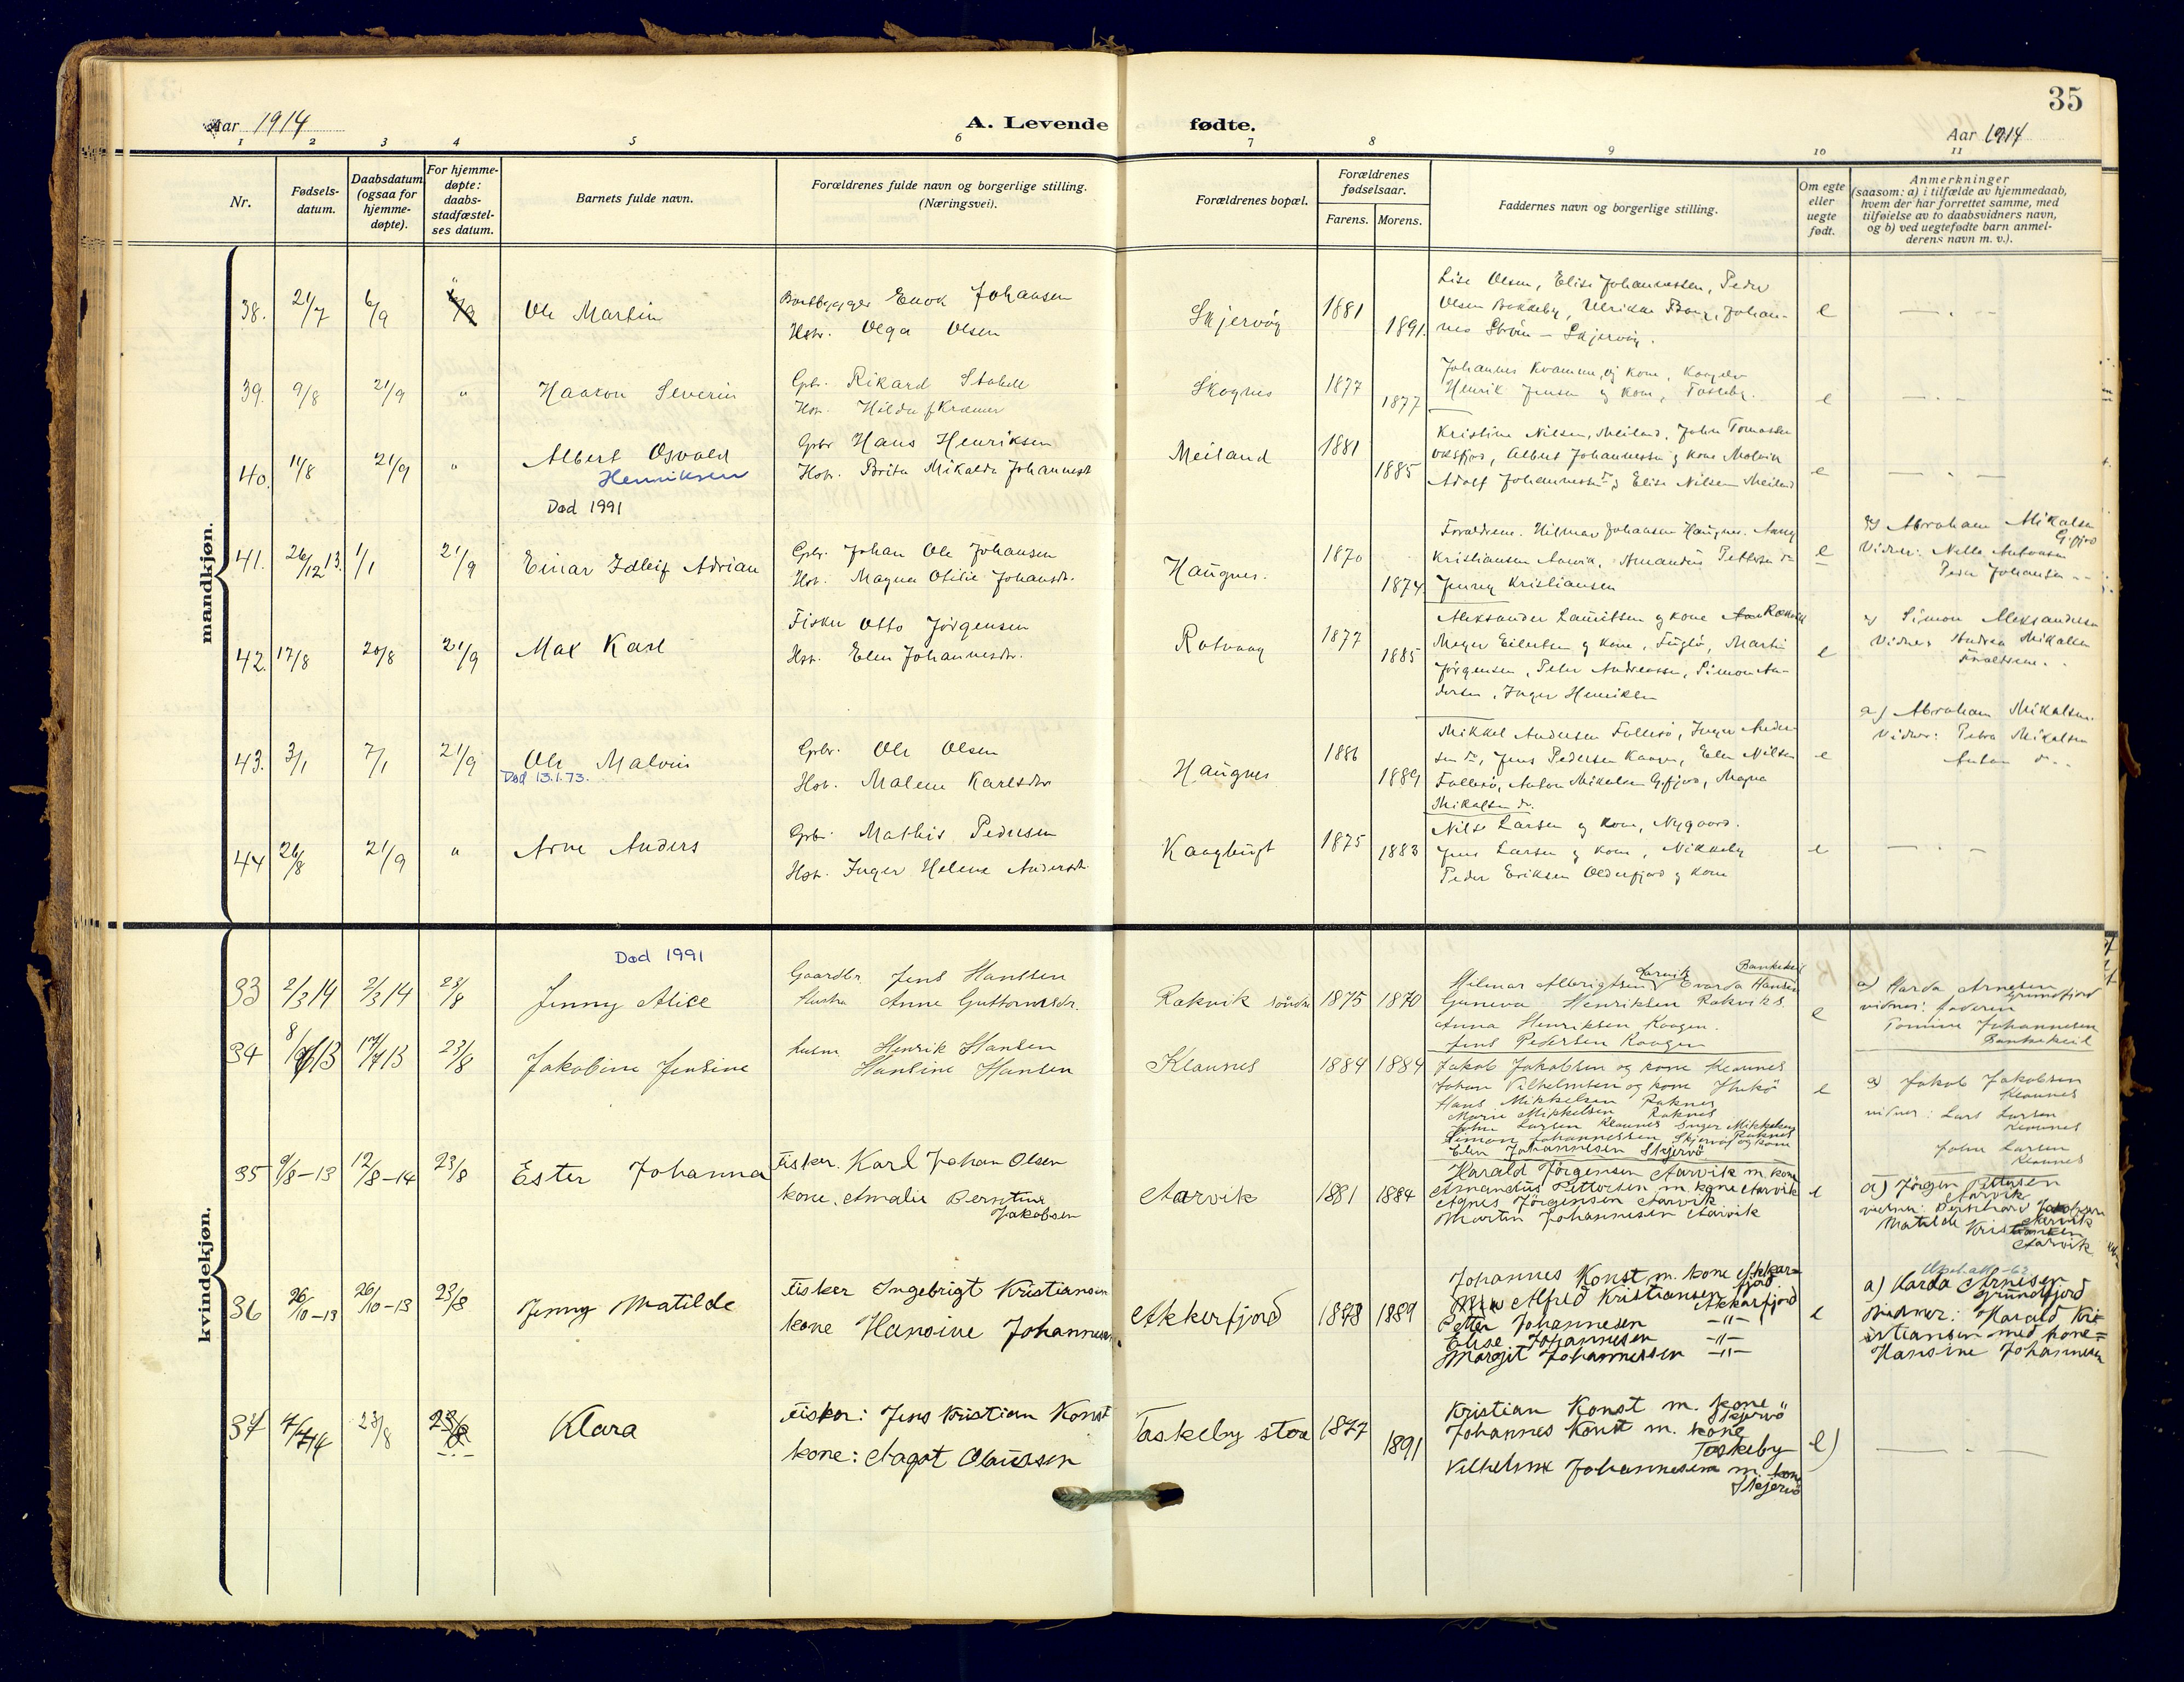 35
Aar 1914
A. Levende fødte.
Aar 1914
1 2 3 4 5 6 7 8 9 10 11
Nr.
Fødsels-
datum.
Daabsdatum
(ogsaa for
hjemme-
døpte).
For hjemme-
døpte:
daabs-
stadfæstel-
ses datum.
Barnets fulde navn.
Forældrenes fulde navn og borgerlige stilling.
(Næringsvei).
Forældrenes bopæl.
Forældrenes
fødselsaar.
Farens. Morens.
Faddernes navn og borgerlige stilling.
Om egte
eller
uegte
født.
Anmerkninger
(saasom: a) i tilfælde av hjemmedaab,
hvem der har forrettet samme, med
tilføielse av to daabsvidners navn,
og b) ved uegtefødte barn anmel-
derens navn m. v.).
mandkjøn.
38. 21/7 6/9 Ole Martin
Enok Johansen
Hstr. Olga Olsen
Skjervöy 1881 1891.
Lise Olsen, Elise Johannessen, Peder
Olsen Bakkeby, Ulrikke, Johan-
nes Ström - Skjervöy.
e
39. 9/8 21/9 " Haakon Severin
Gbr. Rikard Stabell
Hstr. Hilda f. Kræmer
Skognes 1877 1877
Johannes Kvamme og kone, Kaagen
Henrik Jensen og kone, Taskeby.
e
40. 11/8 21/9 " Albert Osvald
Henriksen
Død 1991
Gbr Hans Henriksen
Hstr. Brita Mikalda Johannesdt
Meiland 1881 1885
Kristine Nilsen, Meiland, John Tomassen
Albert Johannessen og kone
Adolf Johannessen, Elise Nilsen Meiland
e
41. 26/12 13. 1/1 21/9 Einar Edleif Adrian
Gbr. Johan Ole Johansen
Hstr. Magna Otilie Johansdt.
Haugnes. 1870 1874
Forældrene. Hilmar Johansen Haugnes.
Kristiansen Aarvik, Amandus Pettersen do
Jenny Kristiansen
e
a) Abraham Mikalsen
Vidner: Antonsen
Peder Johansen
42. 17/8 20/8 21/9 Max Karl
Fisker Otto Jörgensen
Hstr. Elen Johannesdtr.
Rotvaag 1877 1885
Aleksander Lauritsen og kone
Meyer Eilertsen og kone, Fuglö, Martin
Jörgensen, Peter Andreassen, Simon An-
dersen, Inger Henriksen
e
a) Simon Aleksandersen
Vidner Andrea Mikalsen
Forældrene.
43. 3/1 7/1 21/9 Ole Malvin
Død 13.1.73.
Gbr. Ole Olsen
Hstr. Malene Karlsdtr
Haugnes 1886 1889
Mikkel Andersen Follesö, Inger Ander-
sen do, Jens Pedersen Kaagen, Elen Nilsen
Follesö, Anton Mikalsen Gifjord, Magna
Mikalsen do.
e
a) Abraham Mikalsen.
Vidner: Petra Mikalsen
Anton do
44 26/8 21/9 " Arne Anders
Gbr. Mathis Pedersen
Hstr. Inger Helene Andersdt.
Kaagbugt 1875 1883
Nils Larsen og kone, Nygaard.
Jens Larsen og kone, Nikkeby
Peder Eriksen Olderfjord og kone
e
kvindekjøn.
Død 1991
33 2/3 14 2/3 14 23/8 Jenny Alice
Gaardbr Jens Hanssen
Hustru Anne Guttormsdr.
Rakvik söndre 1875 1870
Hilmar Albrigtsen Larvik Evarda Hansen Bankekeil
Guneva Henriksen Rakvik s.
Anna Henriksen Kaagen.
Jens Pedersen Kaagen
e
a) Harda Arnesen
Grundfjord
vidner: faderen
Tomine Johannesen
Bankekeil
34 8/ 13 17/7 13 23/8 Jakobine Jensine
Henrik Hansen
Hansine Hansen
Klaunes 1884 1884
Jakob Jakobsen og kone Klaunes
Johan Vilhelmsen og kone
Hans Mikkelsen Raknes
Marie Mikkelsen Raknes
John Larsen Klaunes Inger Mikkelsen
Raknes
Simon Johannessen Skjervöy og kone
Elen Johannesen Skjervö
e
a) Jakob Jakobsen
Klaunes
vidner: Lars Larsen
Klaunes
John Larsen
Klaunes
35 9/8-13 12/8-14 23/8 Ester Johanna
Fisker. Karl Johan Olsen
kone. Amalie Berntine
Jakobsen
Aarvik 1881 1884
Harald Jörgensen Aarvik m. kone
Amandus Pettersen m. kone Aarvik
Agnes Jörgensen Aarvik
Martin Johannesen Aarvik
e
a) Jörgen Pettersen
Aarvik
vidner: Bernhard Jakobsen
Aarvik
Matilde Kristiansen
Aarvik
36 26/10-13 26/10-13 23/8 Jenny Matilde
Fisker Ingebrigt Kristiansen
kone Hansine Johannesen
Akkerfjord 1878 1889
Johannes Konst m. kone Akkar-
fjord
Alfred Kristiansen Akkarfjord
Petter Johannesen -"-
Elise Johannesen -"-
Margit Johannessen -"-
e
a) Harda Arnesen
Grundfjord
Vidner: Harald Kri-
stiansen med kone=
Hansine Johannesen
37 4/7 14 23/8 Klara
Fisker: Jens Kristian Konst
kone: Aagot Olaussen
Taskeby store 1877 1891
Kristian Konst m. kone
Skjervö
Johannes Konst m. kone
Taskeby
Vilhelm Johannesen m. kone
Skjervö
e)